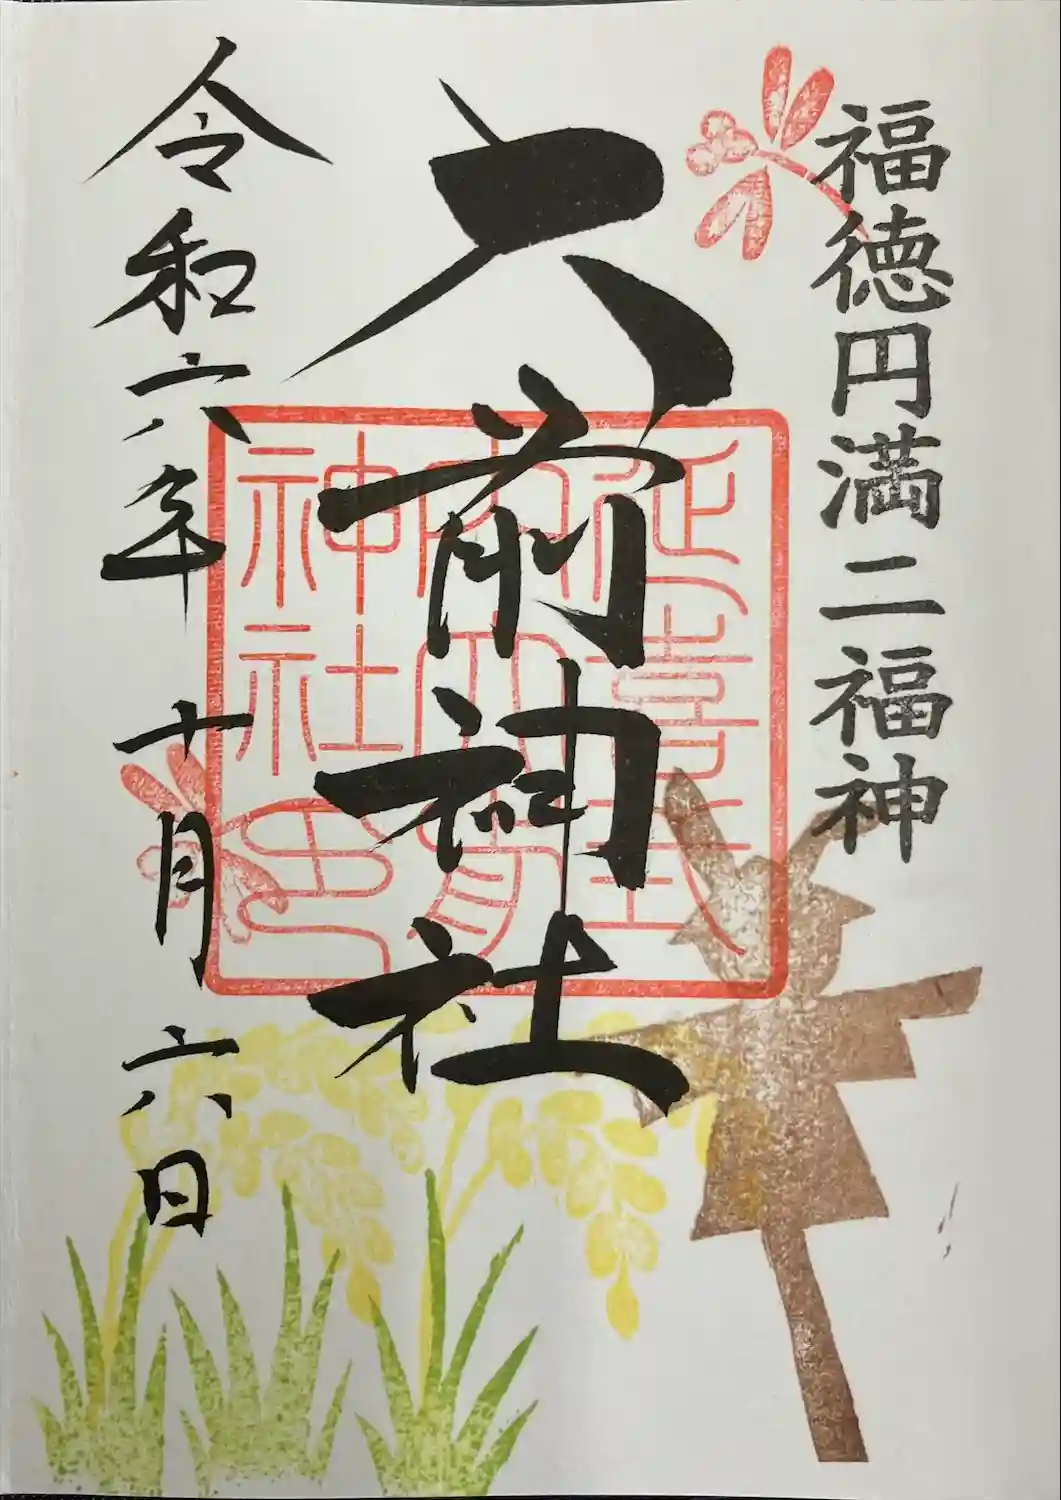 福徳円満二福神
大前神社
令和六年十月六日
延喜式
内大前
神社印